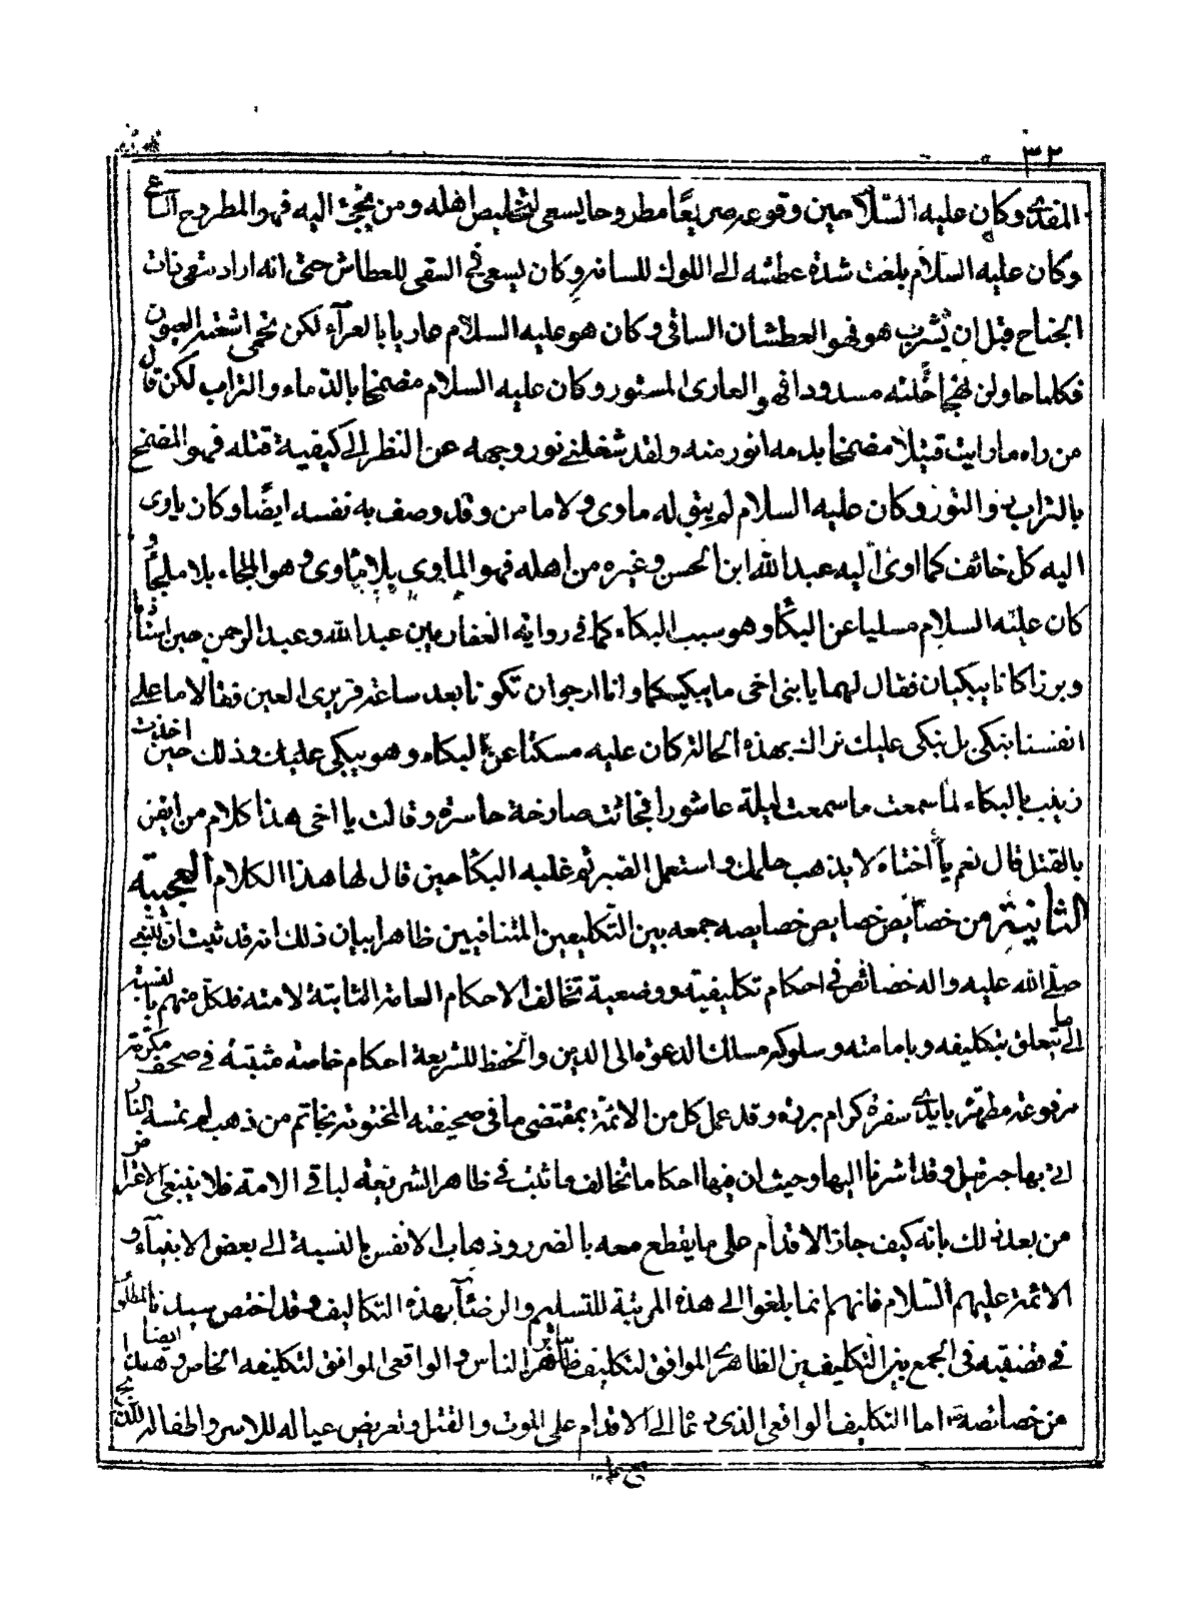 ٣٢
المفدى وكان عليه السلام حين وقوعه صريعًا مطروحا يسعى لتخليص اهله ومن يلتجئ اليه فهو المطروح الساعي
وكان عليه السلام بلغت شدة عطشه الى اللوك للسانه وكان يسعى فى السقى للعطاش حتى انه اراد سقى ذات
الجناح قبل ان يشرب هو فهو العطشان الساقى وكان هو عليه السلام عاريا بالعراء لكن تحمى اشعته العيون
فكلما حاولن نهجا خلنه مسدودا فهو العارى المستور وكان عليه السلام مضمخا بالدماء والتراب لكن قال
من راه ما رايت قتيلا مضمخا بدمه انور منه ولقد شغلنى نور وجهه عن النظر الى كيفية قتله فهو المضمخ
بالتراب والنور وكان عليه السلام لم يبق له ماوى ولا مامن وقد وصف به نفسه ايضًا وكان ياوى
اليه كل خائف كما اوى اليه عبد الله ابن الحسن وغيره من اهله فهو الماوى بلا ماوى وهو الملجاء بلا ملجأ و
كان عليه السلام مسليا عن البكا وهو سبب البكاء كما فى رواية الغفاريين عبد الله وعبد الرحمن حين استأذنا
وبرزا كانا يبكيان فقال لهما يا بنى اخى ما يبكيكما وانا ارجو ان تكونا بعد ساعة قريرى العين فقالا ما على
انفسنا نبكى بل نبكى عليك نراك بهذه الحالة كان عليه مسكتا عن البكاء وهو يبكى عليك وذلك حين اخذت
زينب بالبكاء لما سمعت ما سمعت ليلة عاشورا فجائت صارخة حاسرة وقالت يا اخى هذا كلام من ايقن
بالقتل قال نعم يا اختاه لا يذهب حلمك واستعمل الصبر ثم غلبه البكا حين قال لها هذا الكلام العجيبة
الثانية من خصائص خصايص خصايصه جمعه بين التكليفين المتنافيين ظاهرا بيان ذلك انه قد ثبت ان للنبى
صلى الله عليه واله خصائص فى احكام تكليفية ووضعية تخالف الاحكام العامة الثابتة لامته فلكل منهم بالنسبة
الى ما يتعلق بتكليفه وبامامته وسلوكه مسلك الدعوة الى الدين والحفظ للشريعة احكام خاصة مثبتة فى صحف مكرمة
مرفوعة مطهرة بايدى سفرة كرام بررة وقد عمل كل من الائمة بمقتضى ما فى صحيفته المختومة بخاتم من ذهب لم تمسه النار
اتى بها جبرئيل وقد اشرنا اليها وحيث ان فيها احكاما تخالف ما ثبت فى ظاهر الشريعة لباقى الامة فلا ينبغى الاعتراض
من بعد ذلك بانه كيف جاز الاقدام على ما يقطع معه بالضرر وذهاب الانفس بالنسبة الى بعض الانبياء و
الائمة عليهم السلام فانهم انما بلغوا الى هذه المرتبة للتسليم والرضا بهذه التكاليف وقد اختص سيدنا المظلوم
فى قضيته فى الجمع بين التكليفين الظاهرى الموافق لتكليف سائر الناس والواقعى الموافق لتكليفه الخاص وهذا ايضا
من خصائصه اما التكليف الواقعى الذى دعاه الى الاقدام على الموت والقتل وتعريض عياله للاسر واطفاله للذبح